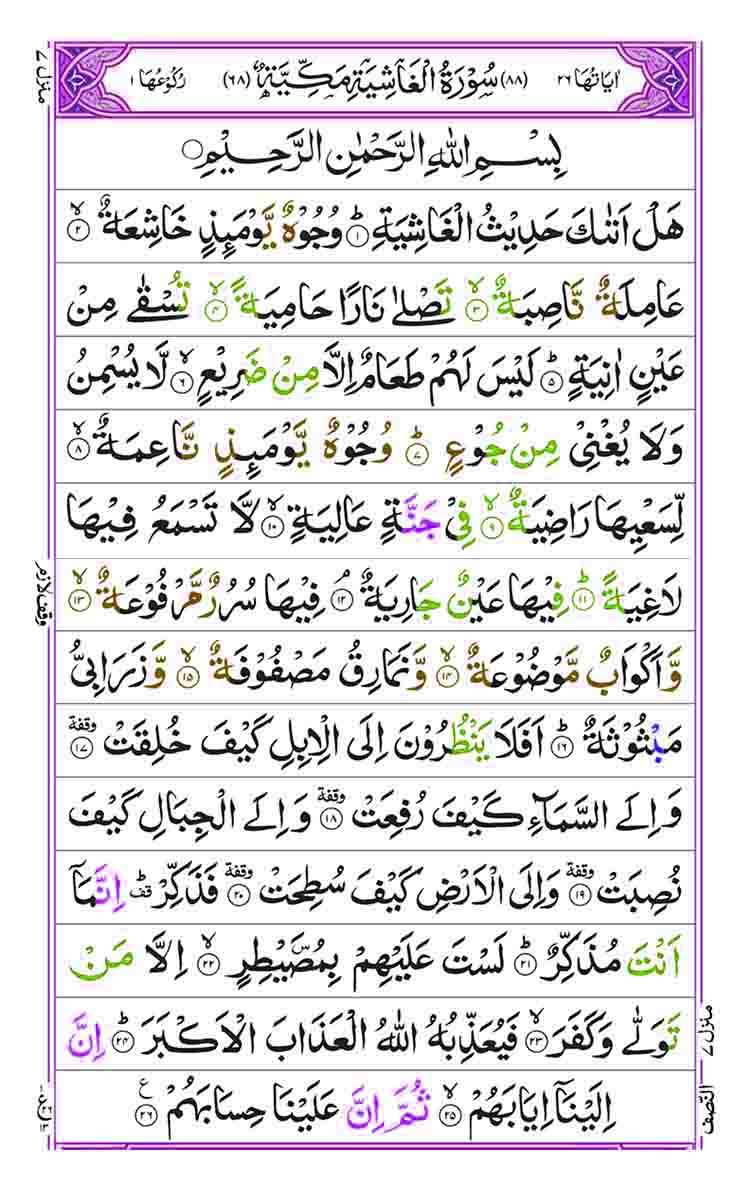 اٰيَاتُهَا ٢٦ (٨٨) سُوْرَةُ الْغَاشِيَةِ مَكِّيَّةٌ (٦٨) رُكُوْعُهَا ١
بِسْمِ اللّٰهِ الرَّحْمٰنِ الرَّحِيْمِ ۝
هَلْ اَتٰىكَ حَدِيْثُ الْغَاشِيَةِ ؕ ١ وُجُوْهٌ يَّوْمَئِذٍ خَاشِعَةٌ ۙ ٢
عَامِلَةٌ نَّاصِبَةٌ ۙ ٣ تَصْلٰى نَارًا حَامِيَةً ۙ ٤ تُسْقٰى مِنْ
عَيْنٍ اٰنِيَةٍ ؕ ٥ لَيْسَ لَهُمْ طَعَامٌ اِلَّا مِنْ ضَرِيْعٍ ۙ ٦ لَّا يُسْمِنُ
وَلَا يُغْنِيْ مِنْ جُوْعٍ ؕ ٧ وُجُوْهٌ يَّوْمَئِذٍ نَّاعِمَةٌ ۙ ٨
لِّسَعْيِهَا رَاضِيَةٌ ۙ ٩ فِيْ جَنَّةٍ عَالِيَةٍ ۙ ١٠ لَّا تَسْمَعُ فِيْهَا
لَاغِيَةً ؕ ١١ فِيْهَا عَيْنٌ جَارِيَةٌ ۘ ١٢ فِيْهَا سُرُرٌ مَّرْفُوْعَةٌ ۙ ١٣
وَّاَكْوَابٌ مَّوْضُوْعَةٌ ۙ ١٤ وَّنَمَارِقُ مَصْفُوْفَةٌ ۙ ١٥ وَّزَرَابِيُّ
مَبْثُوْثَةٌ ؕ ١٦ اَفَلَا يَنْظُرُوْنَ اِلَى الْاِبِلِ كَيْفَ خُلِقَتْ وقفة ١٧
وَاِلَى السَّمَآءِ كَيْفَ رُفِعَتْ وقفة ١٨ وَاِلَى الْجِبَالِ كَيْفَ
نُصِبَتْ وقفة ١٩ وَاِلَى الْاَرْضِ كَيْفَ سُطِحَتْ وقفة ٢٠ فَذَكِّرْ ؕ قف اِنَّمَآ
اَنْتَ مُذَكِّرٌ ؕ ٢١ لَسْتَ عَلَيْهِمْ بِمُصَۜيْطِرٍ ۙ ٢٢ اِلَّا مَنْ
تَوَلّٰى وَكَفَرَ ۙ ٢٣ فَيُعَذِّبُهُ اللّٰهُ الْعَذَابَ الْاَكْبَرَ ؕ ٢٤ اِنَّ
اِلَيْنَآ اِيَابَهُمْ ۙ ٢٥ ثُمَّ اِنَّ عَلَيْنَا حِسَابَهُمْ ع ٢٦
منزل ٧
وقف لازم
منزل ٧
النصف